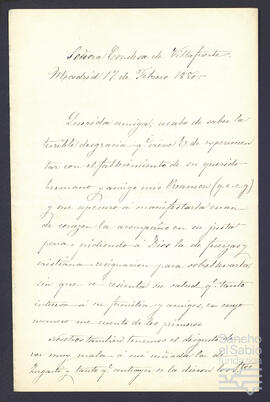 Señora Condesa de Villafuertes
Madrid 17 de Febrero 1880
Querida amiga, acabo de saber la
terrible desgracia q.e viene V. de esperimen
tar con el fallecimiento de su querido
hermano y amigo mio Ramon (q.e.e.g)
y me apresuro a manifestarla cuan
de corazon la acompaño en su justa
pena pidiendo á Dios la dé fuerzas y
cristiana resignacion para sobrellevarla
sin que se resienta su salud q.e tanto
interesa á su familia y amigos, en cuyo
numero me cuento de los primeros
Nosotros tambien tenemos el disgusto de
ver muy mala á mi cuñada la de
Zugarte y tanto q.e anteayer se la dieron los Stos
Sancho
el Sabio
Fundazioa